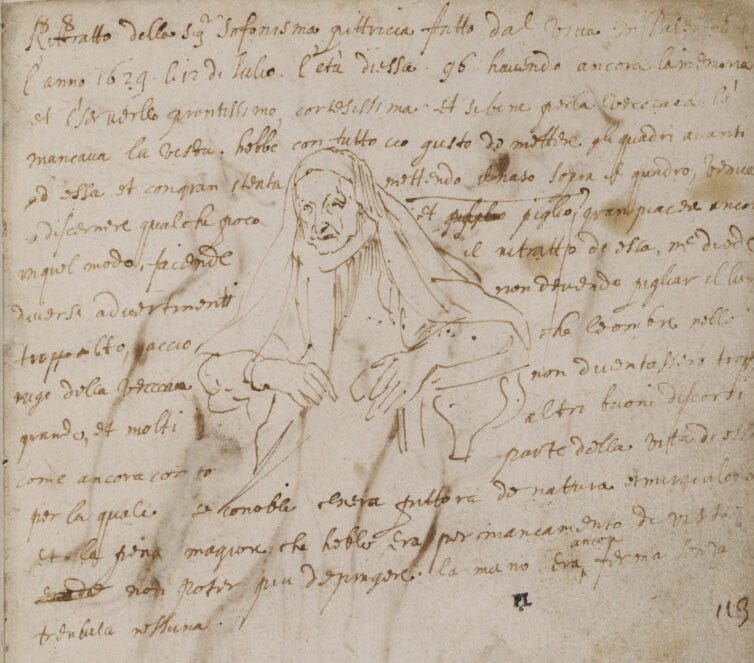 Rittratto della Sigra Sofonisma pittricia fatto dal vivo in Palermo
l'anno 1624 li 12 di Julio l'età di essa 96 havendo ancora la memoria
et cerverllo prontissimo, cortesissima et sebene per la vecciaia le
mancava la vista hebbe con tutto cio gusto de mettere gli quadri avanti
ad essa et con gran stenta mettendo il naso sopra il quadro, venne
a discernere qualche poco et piglio gran piacere ancora
in quel modo, facende il ritratto de essa, me diede
diversi advertimenti non devendo pigliar il lume
troppo alto, accio che le ombre nelle
ruge della vecciaia non diventassero troppo
grande, et molti altri buoni discorsi
come ancora conto parte della vita di essa
per la quale se conobbe chera pittora de natura et miraculosa
et la pena magiore che hebbe era per mancamento di vista
non poter piu depingere la mano era ancora ferma senza
trembula nessuna.
PL
115